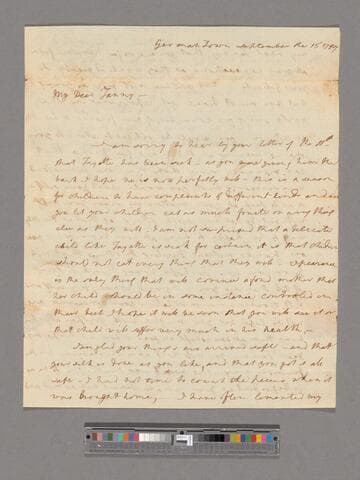 German Town September the 15th 1794
My Dear Fanny—
I am sorry to hear by your letter of the 10th
that Fayette has been sick - as you was giving him the
bark I hope he is now perfectly well - this is a season
for children to have complaints of different kinds and as
you let your children eat as much fruit or any thing
else as they will I am not surprised that a delicate
child like Fayette is sick for certain it is that children
should not eat every thing that they will - experience
is the only thing that will convince a fond mother that
her child should be in some instance controled in
their diet I hope it will be soon that you will see it or
that child will suffer very much in his health,—
I am glad your things are arrived safe - and that
you silk is done as you like, and that you got it all
safe - I had not time to count the peices when it
was brought home, — I have often lamented my